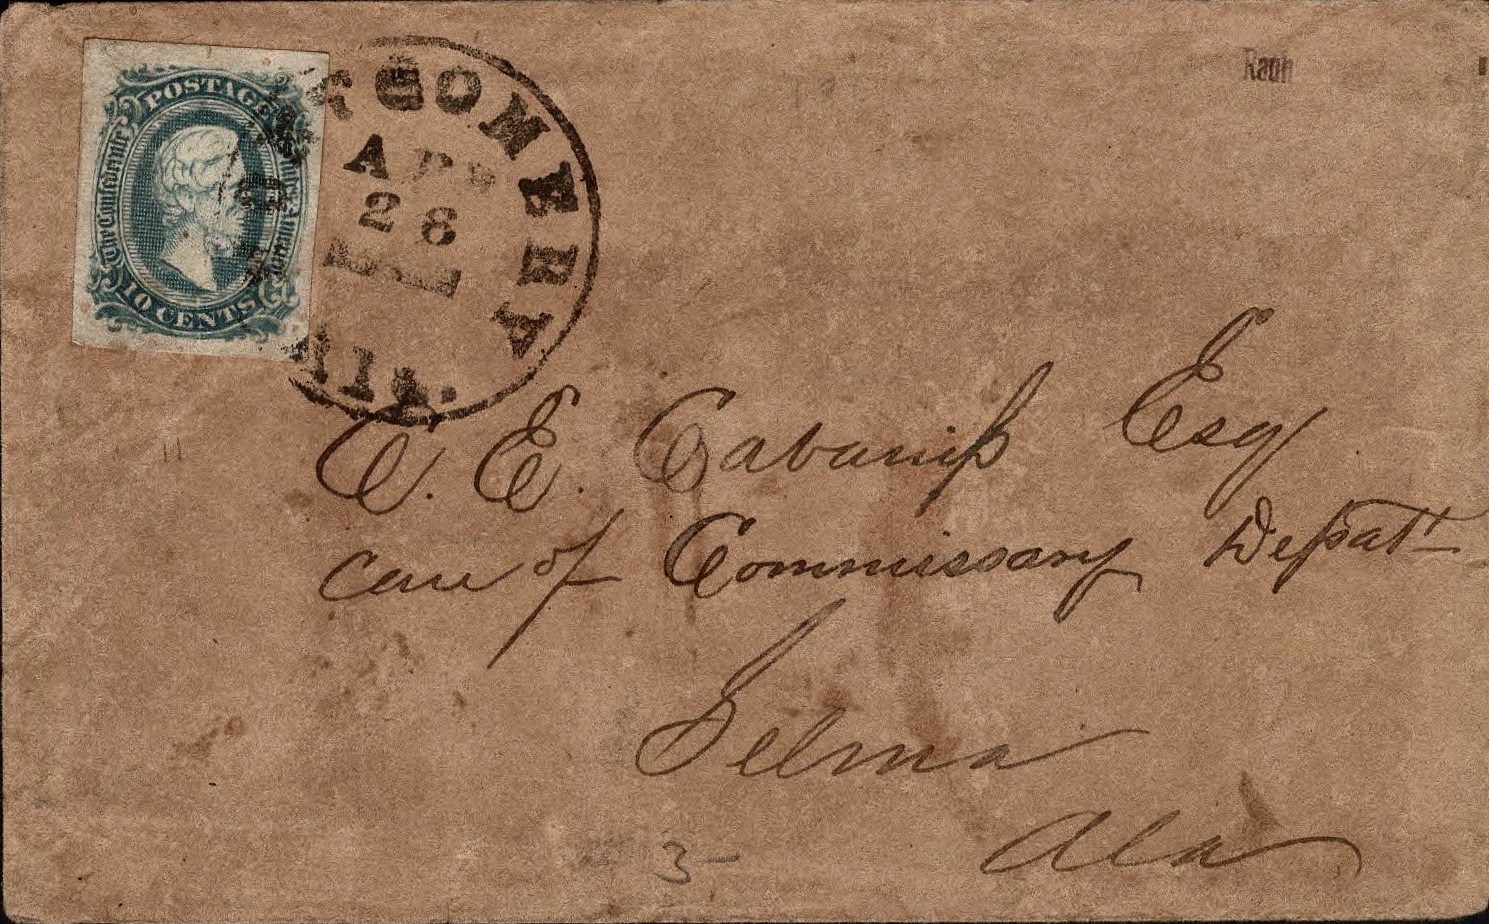 POSTAGE
The Confederate States of America
10 CENTS
MONTGOMERY
APR
28
ALA.
Raph
C. E. Cabaniss Esq
care of Commissary Depat-
Selma
Ala
3-